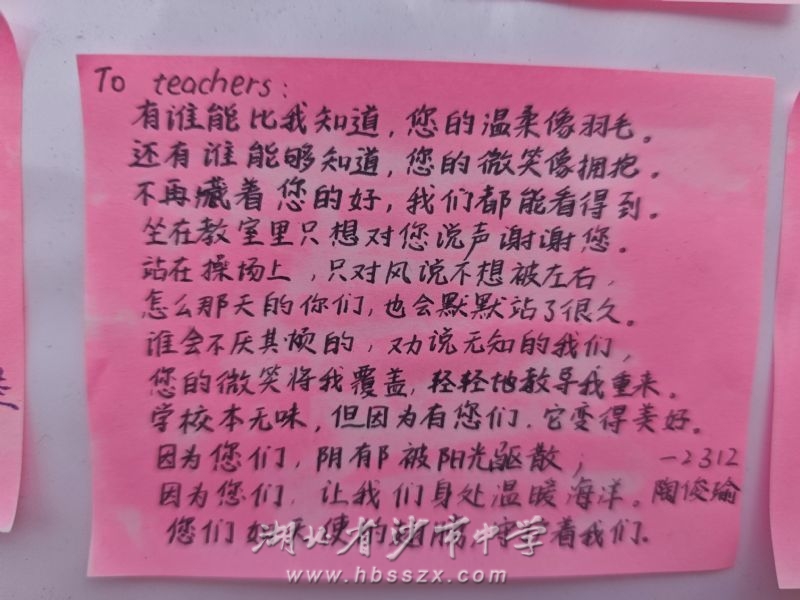 To teachers:
有谁能比我知道，您的温柔像羽毛。
还有谁能够知道，您的微笑像拥抱。
不再藏着您的好，我们都能看得到。
坐在教室里只想对您说声谢谢您。
站在操场上，只对风说不想被左右，
怎么那天的你们，也会默默站了很久。
谁会不厌其烦的，劝说无知的我们，
您的微笑将我覆盖，轻轻地教导我重来。
学校本无味，但因为有您们，它变得美好。
因为您们，阴郁被阳光驱散； —2312
因为您们，让我们身处温暖海洋。陶俊瑜
您们如天使的翅膀，守着我们。
湖北省沙市中学
www.hbsszx.com